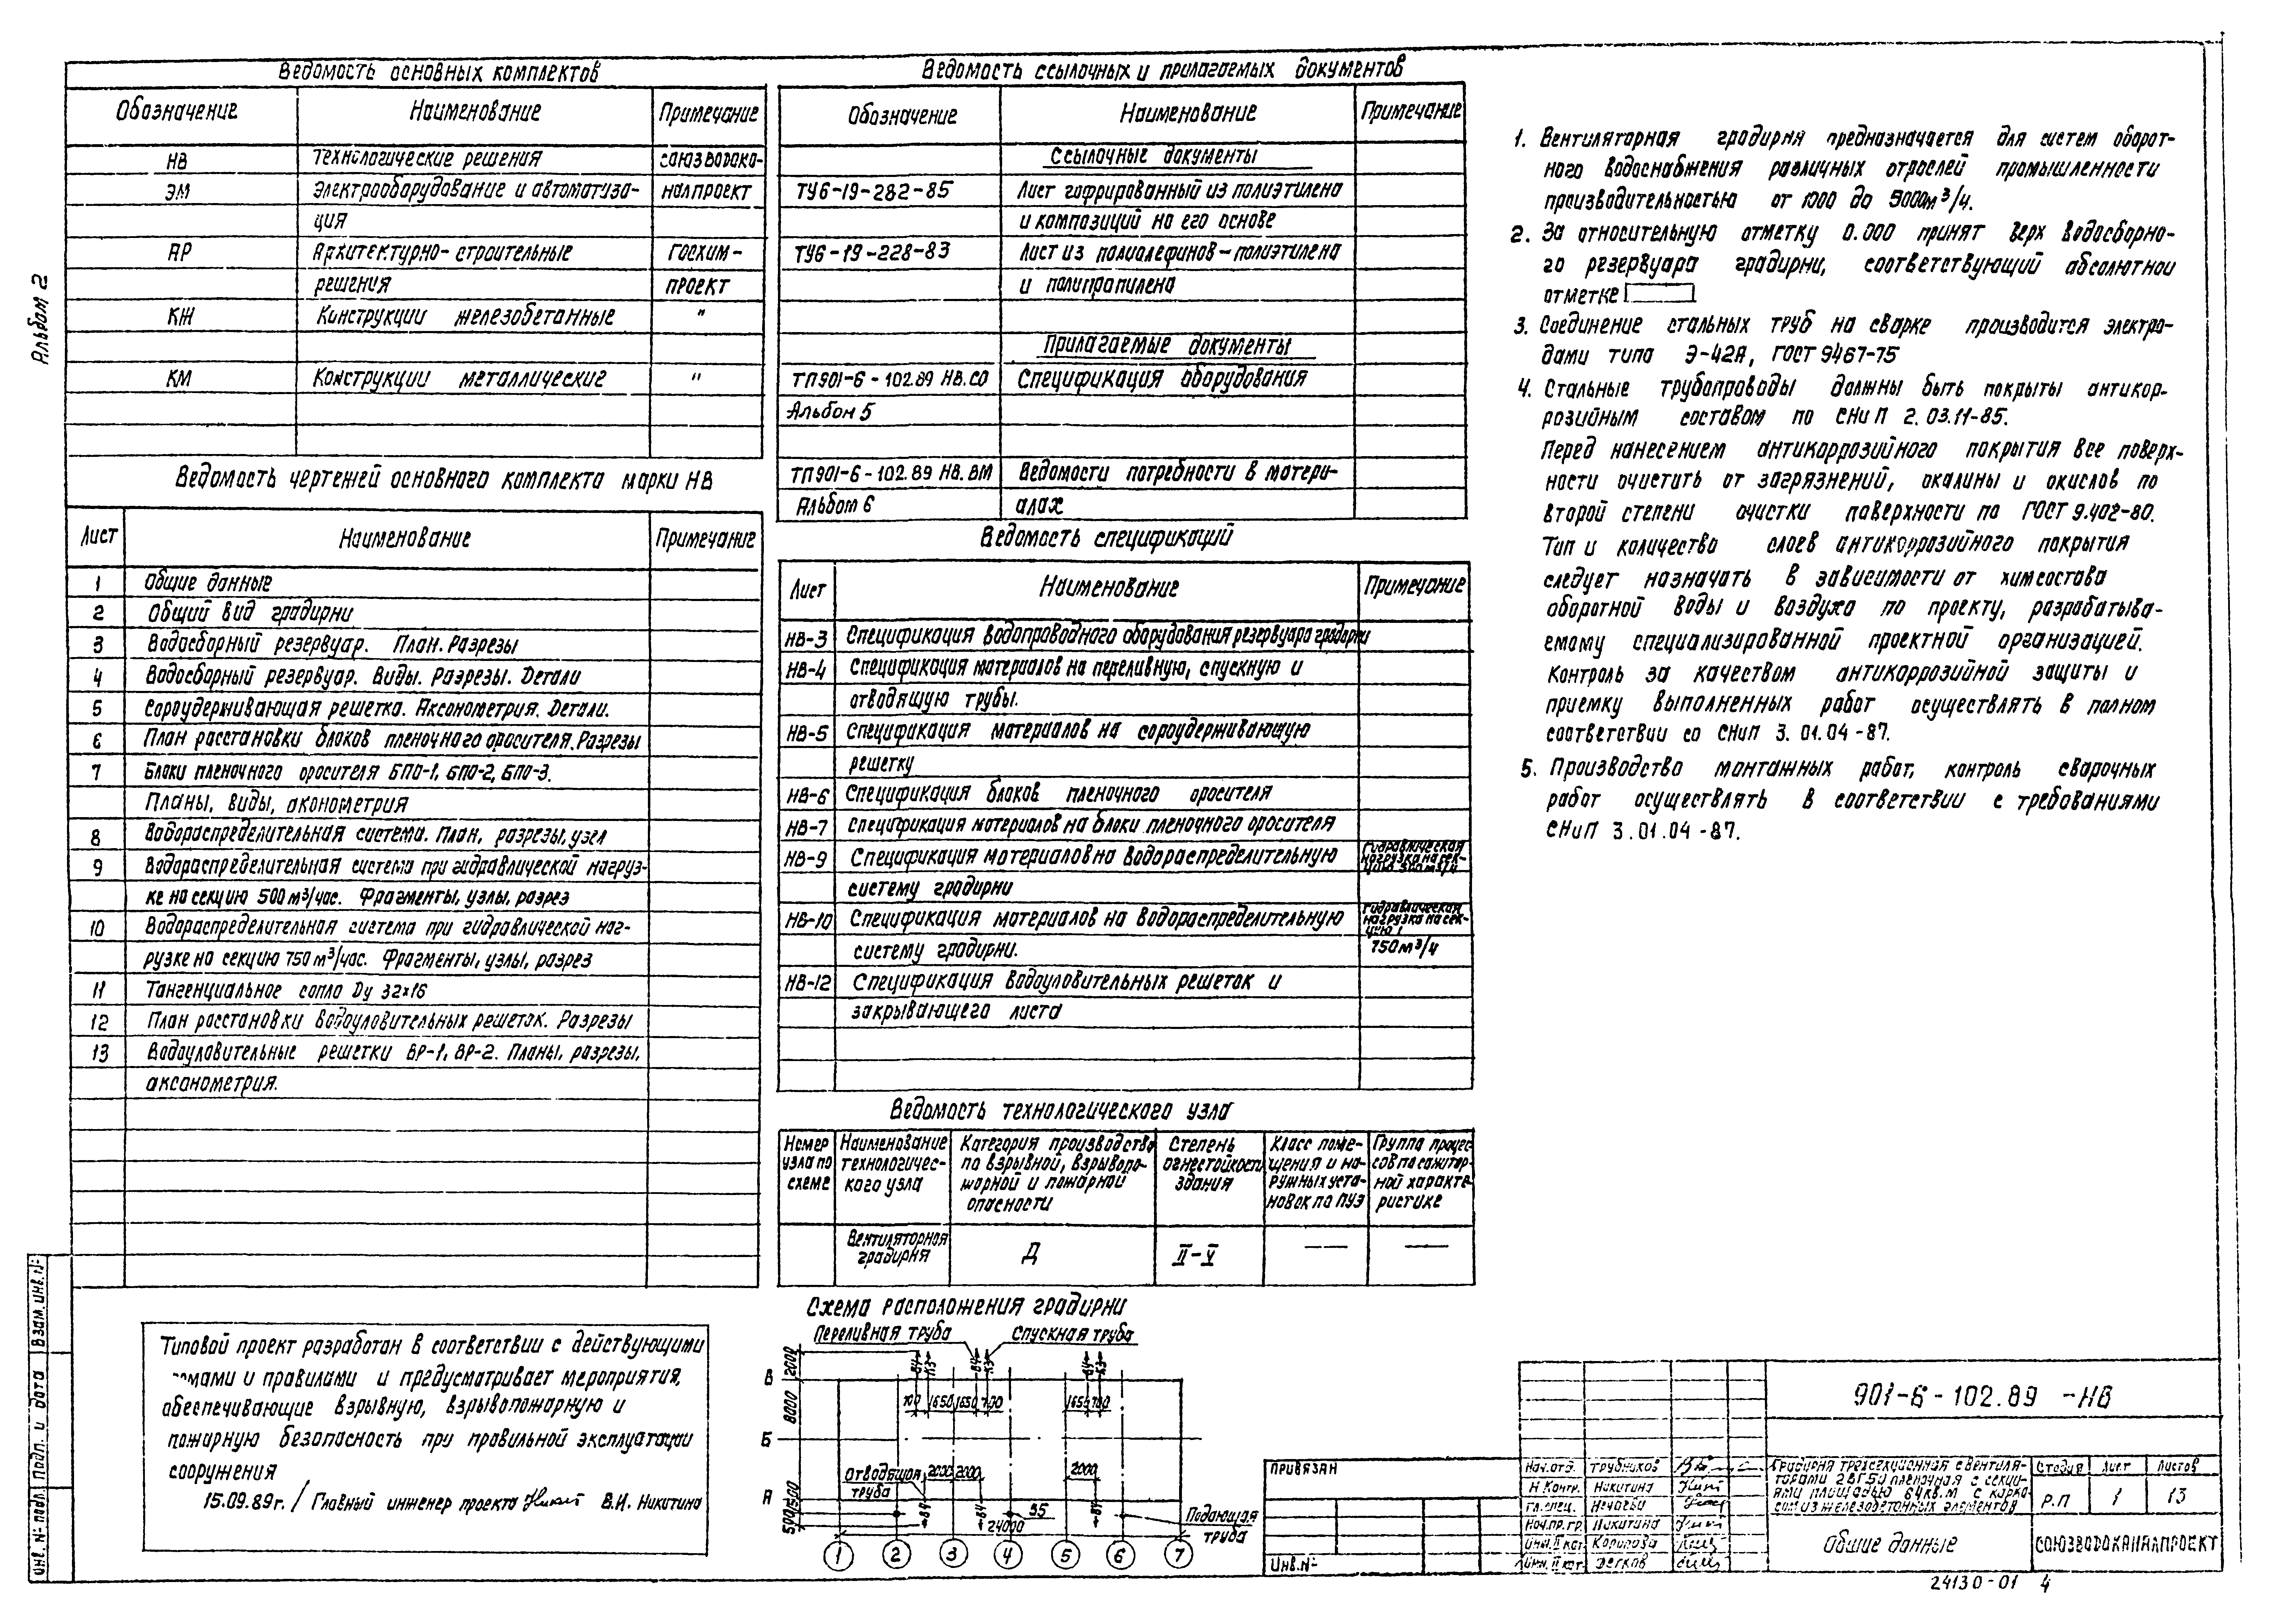 Альбом 2
Ведомость основных комплектов
Обозначение Наименование Примечание
НВ Технологические решения Союзводока-
ЭМ Электрооборудование и автоматиза- налпроект
ция
АР Архитектурно-строительные Госхим-
решения проект
КЖ Конструкции железобетонные "
КМ Конструкции металлические "
Ведомость чертежей основного комплекта марки НВ
Лист Наименование Примечание
1 Общие данные
2 Общий вид градирни
3 Водосборный резервуар. План. Разрезы
4 Водосборный резервуар. Виды. Разрезы. Детали
5 Сороудерживающая решетка. Аксонометрия. Детали.
6 План расстановки блоков пленочного оросителя. Разрезы
7 Блоки пленочного оросителя БПО-1, БПО-2, БПО-3.
Планы, виды, аконометрия
8 Водораспределительная система. План, разрезы, узел
9 Водораспределительная система при гидравлической нагруз-
ке на секцию 500 м³/час. Фрагменты, узлы, разрез
10 Водораспределительная система при гидравлической наг-
рузке на секцию 750 м³/час. Фрагменты, узлы, разрез
11 Тангенциальное сопло Dу 32×16
12 План расстановки водоуловительных решеток. Разрезы
13 Водоуловительные решетки ВР-1, ВР-2. Планы, разрезы,
аксонометрия.
Типовой проект разработан в соответствии с действующими
и правилами и предусматривает мероприятия,
обеспечивающие взрывную, взрывопожарную и
пожарную безопасность при правильной эксплуатации
сооружения
15.09.89г. / Главный инженер проекта В.И. Никитина
Ведомость ссылочных и прилагаемых документов
Обозначение Наименование Примечание
Ссылочные документы
ТУ6-19-282-85 Лист гофрированный из полиэтилена
и композиций на его основе
ТУ6-19-228-83 Лист из полиолефинов-полиэтилена
и полипропилена
Прилагаемые документы
ТП901-6-102.89 НВ.СО Спецификация оборудования
Альбом 5
ТП901-6-102.89 НВ.ВМ Ведомости потребности в матери-
Альбом 6 алах
Ведомость спецификаций
Лист Наименование Примечание
НВ-3 Спецификация водопроводного оборудования резервуара градирни
НВ-4 Спецификация материалов на переливную, спускную и
отводящую трубы.
НВ-5 Спецификация материалов на сороудерживающую
решетку
НВ-6 Спецификация блоков пленочного оросителя
НВ-7 Спецификация материалов на блоки пленочного оросителя
НВ-9 Спецификация материалов на водораспределительную Гидравлическая нагрузка на сек-цию 500 м³/ч
систему градирни
НВ-10 Спецификация материалов на водораспределительную Гидравлическая нагрузка на сек-цию
систему градирни. 750 м³/ч
НВ-12 Спецификация водоуловительных решеток и
закрывающего листа
Ведомость технологического узла
Номер Наименование Категория производства Степень Класс поме- Группа процес
узла по технологичес- по взрывной, взрывопо- огнестойкости щения и на- сов по санитар-
схеме кого узла жарной и пожарной здания ружных уста- ной характе-
опасности новок по ПУЭ ристике
Вентиляторная
градирня Д II-V — —
Схема расположения градирни
Переливная труба Спускная труба
В4 К3 В4 К3 В4 К3
2000
В
700 1650 1650 700 1650 700
8000
Б
Отводящая 2000 2000 2000
труба
А
В4 В4 В5 В4
500 1500
24000
Подающая
труба
1 2 3 4 5 6 7
1. Вентиляторная градирня предназначается для систем оборот-
ного водоснабжения различных отраслей промышленности
производительностью от 1000 до 5000м³/ч.
2. За относительную отметку 0.000 принят верх водосборно-
го резервуара градирни, соответствующий абсолютной
отметке
3. Соединение стальных труб на сварке производится электро-
дами типа Э-42А, ГОСТ 9467-75
4. Стальные трубопроводы должны быть покрыты антикор-
розийным составом по СНиП 2.03.11-85.
Перед нанесением антикоррозийного покрытия все поверх-
ности очистить от загрязнений, окалины и окислов по
второй степени очистки поверхности по ГОСТ 9.402-80.
Тип и количество слоев антикоррозийного покрытия
следует назначать в зависимости от химсостава
оборотной воды и воздуха по проекту, разрабатыва-
емому специализированной проектной организацией.
Контроль за качеством антикоррозийной защиты и
приемку выполненных работ осуществлять в полном
соответствии со СНиП 3.01.04-87.
5. Производство монтажных работ, контроль сварочных
работ осуществлять в соответствии с требованиями
СНиП 3.01.04-87.
Привязан
Инв.№
901-6-102.89 -НВ
Нач.отд. Трубников
Н.контр. Никитина
Гл.спец. Нечаева
Нач.пр.гр. Никитина
Инж.II кат
Инж.II кат
Градирня трехсекционная с вентиля-
торами 2ВГ50 пленочная с секци-
ями площадью 64кв.м с карка-
сом из железобетонных элементов
Стадия Лист Листов
Р.П 1 13
Общие данные
СОЮЗВОДОКАНАЛПРОЕКТ
24130-01 4
Инв. № подл. Подп. и дата Взам. инв. №